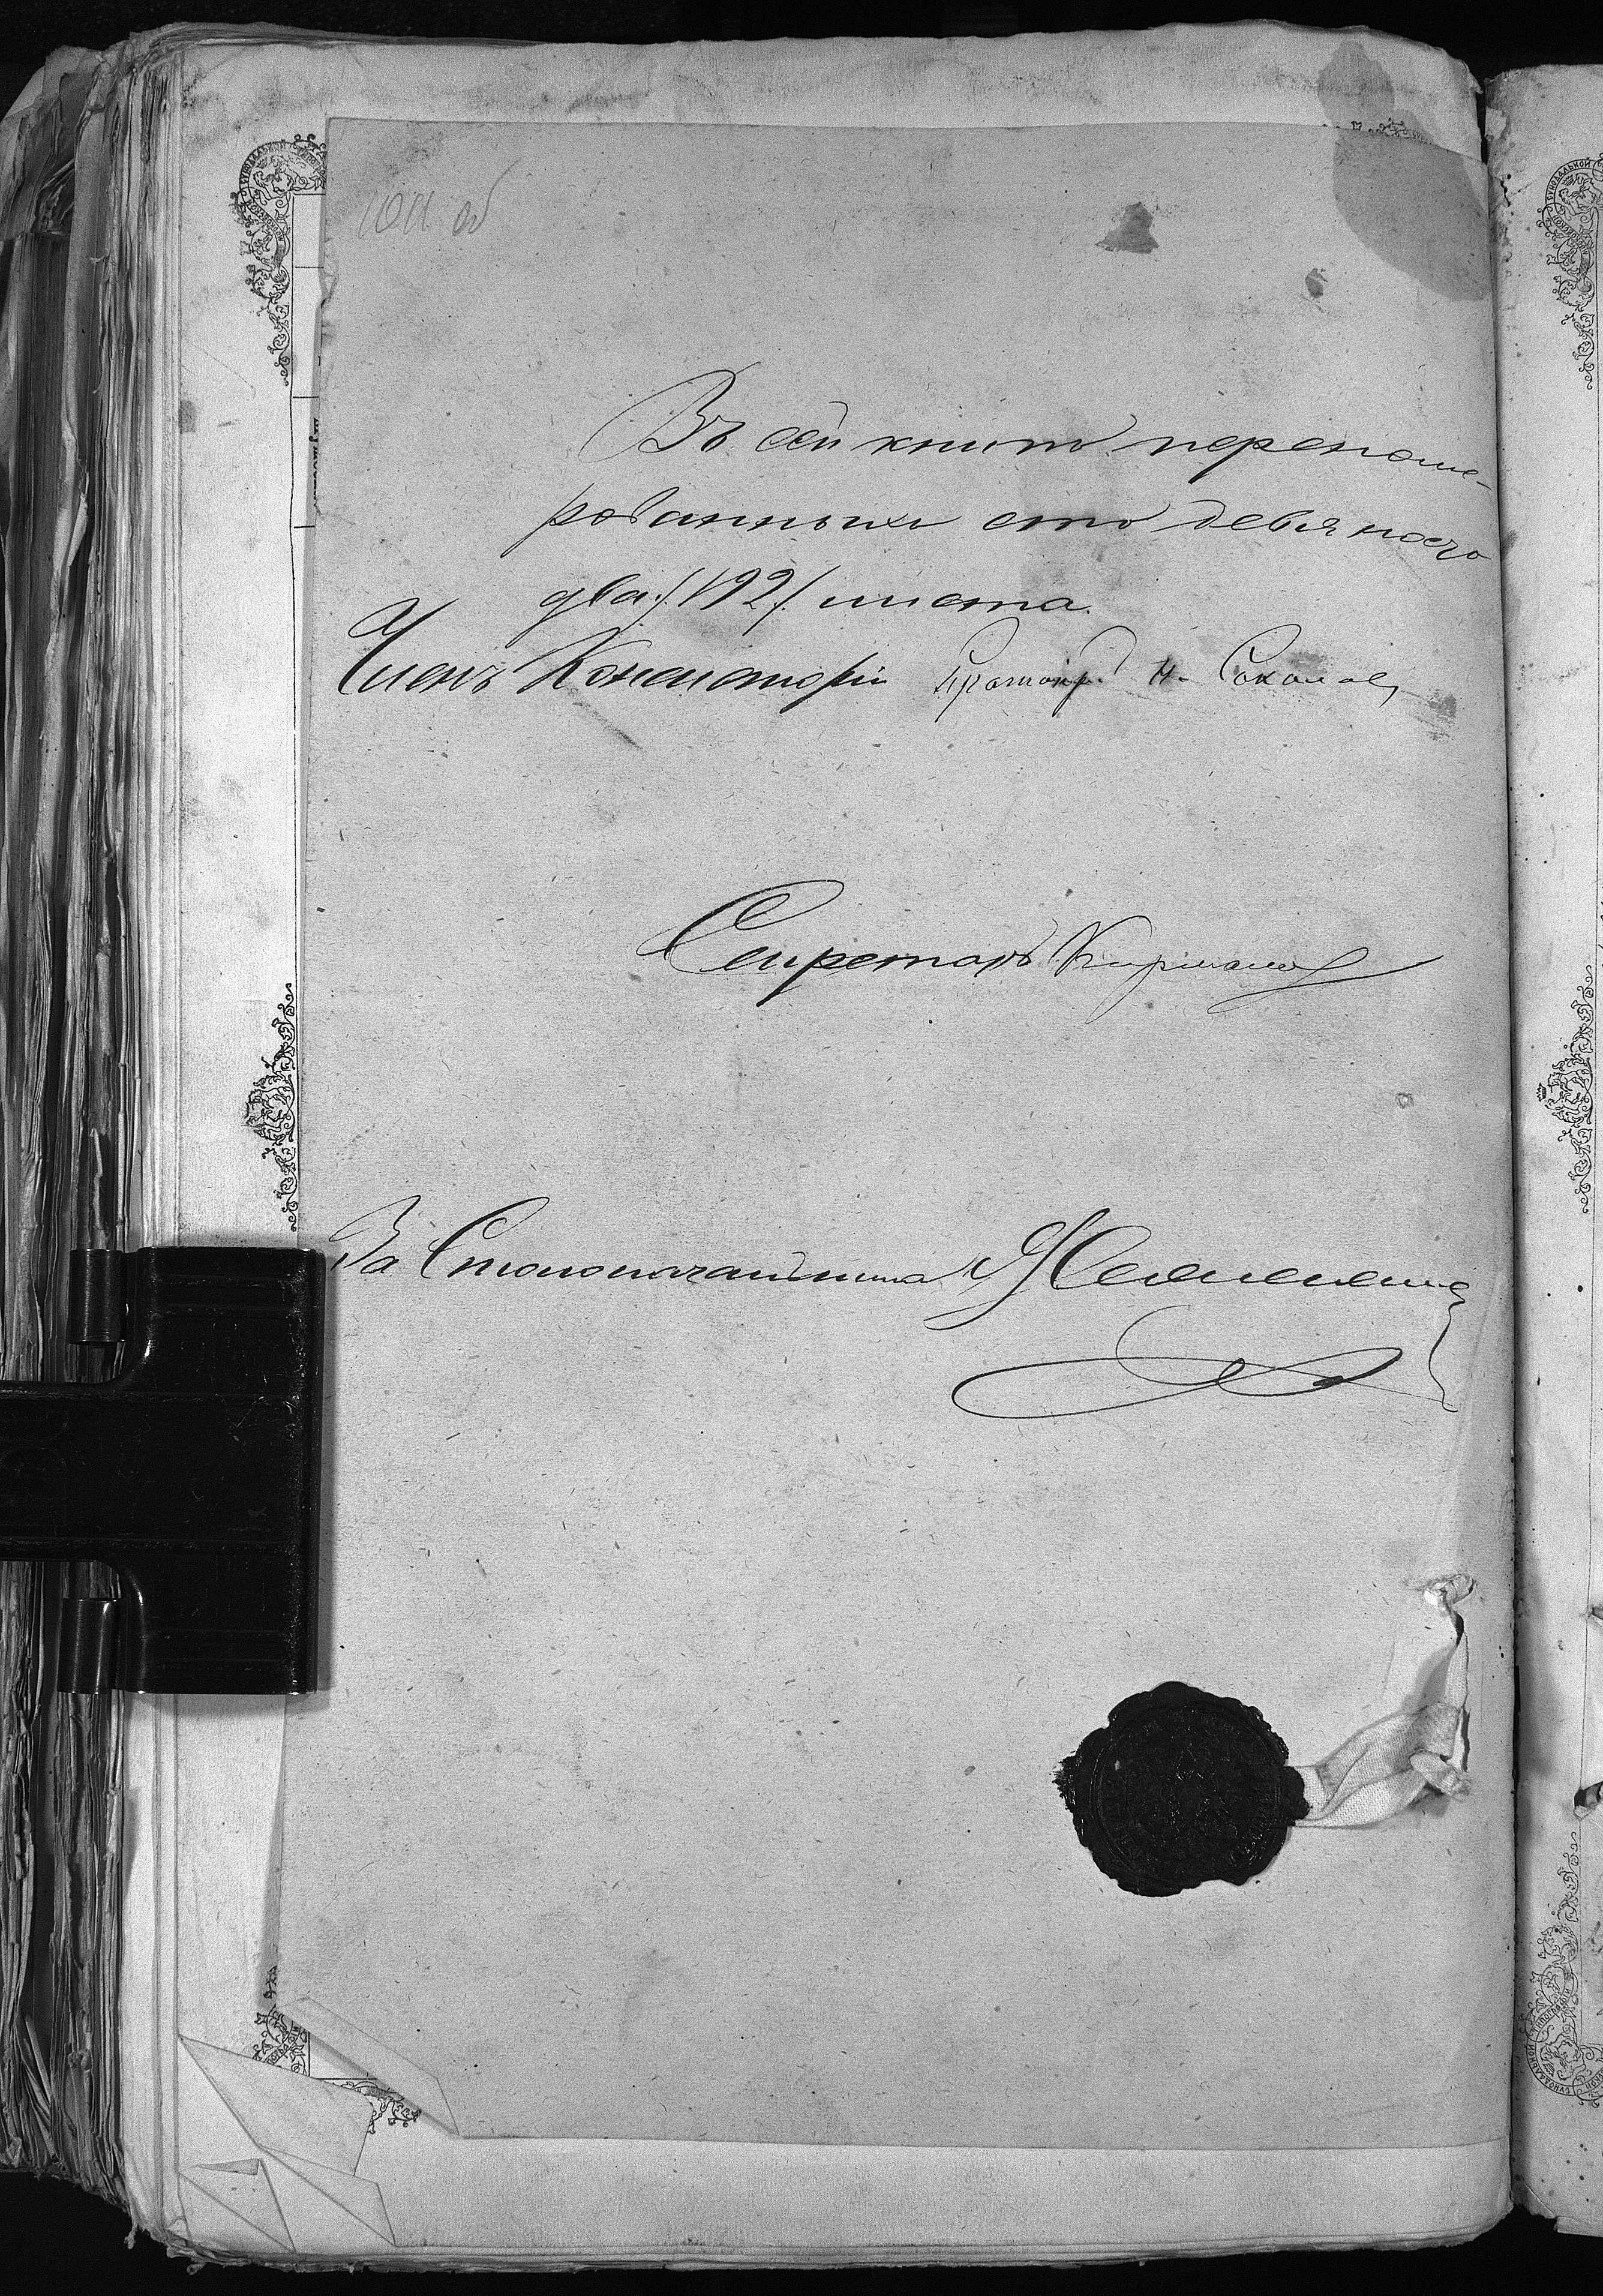 1011 об
Въ сей книгѣ перенуме-
рованныхъ сто девяносто
два /192/ листа.
Членъ Консисторіи Протоіер. Н. Соколовъ
Секретарь
За Столоначальника